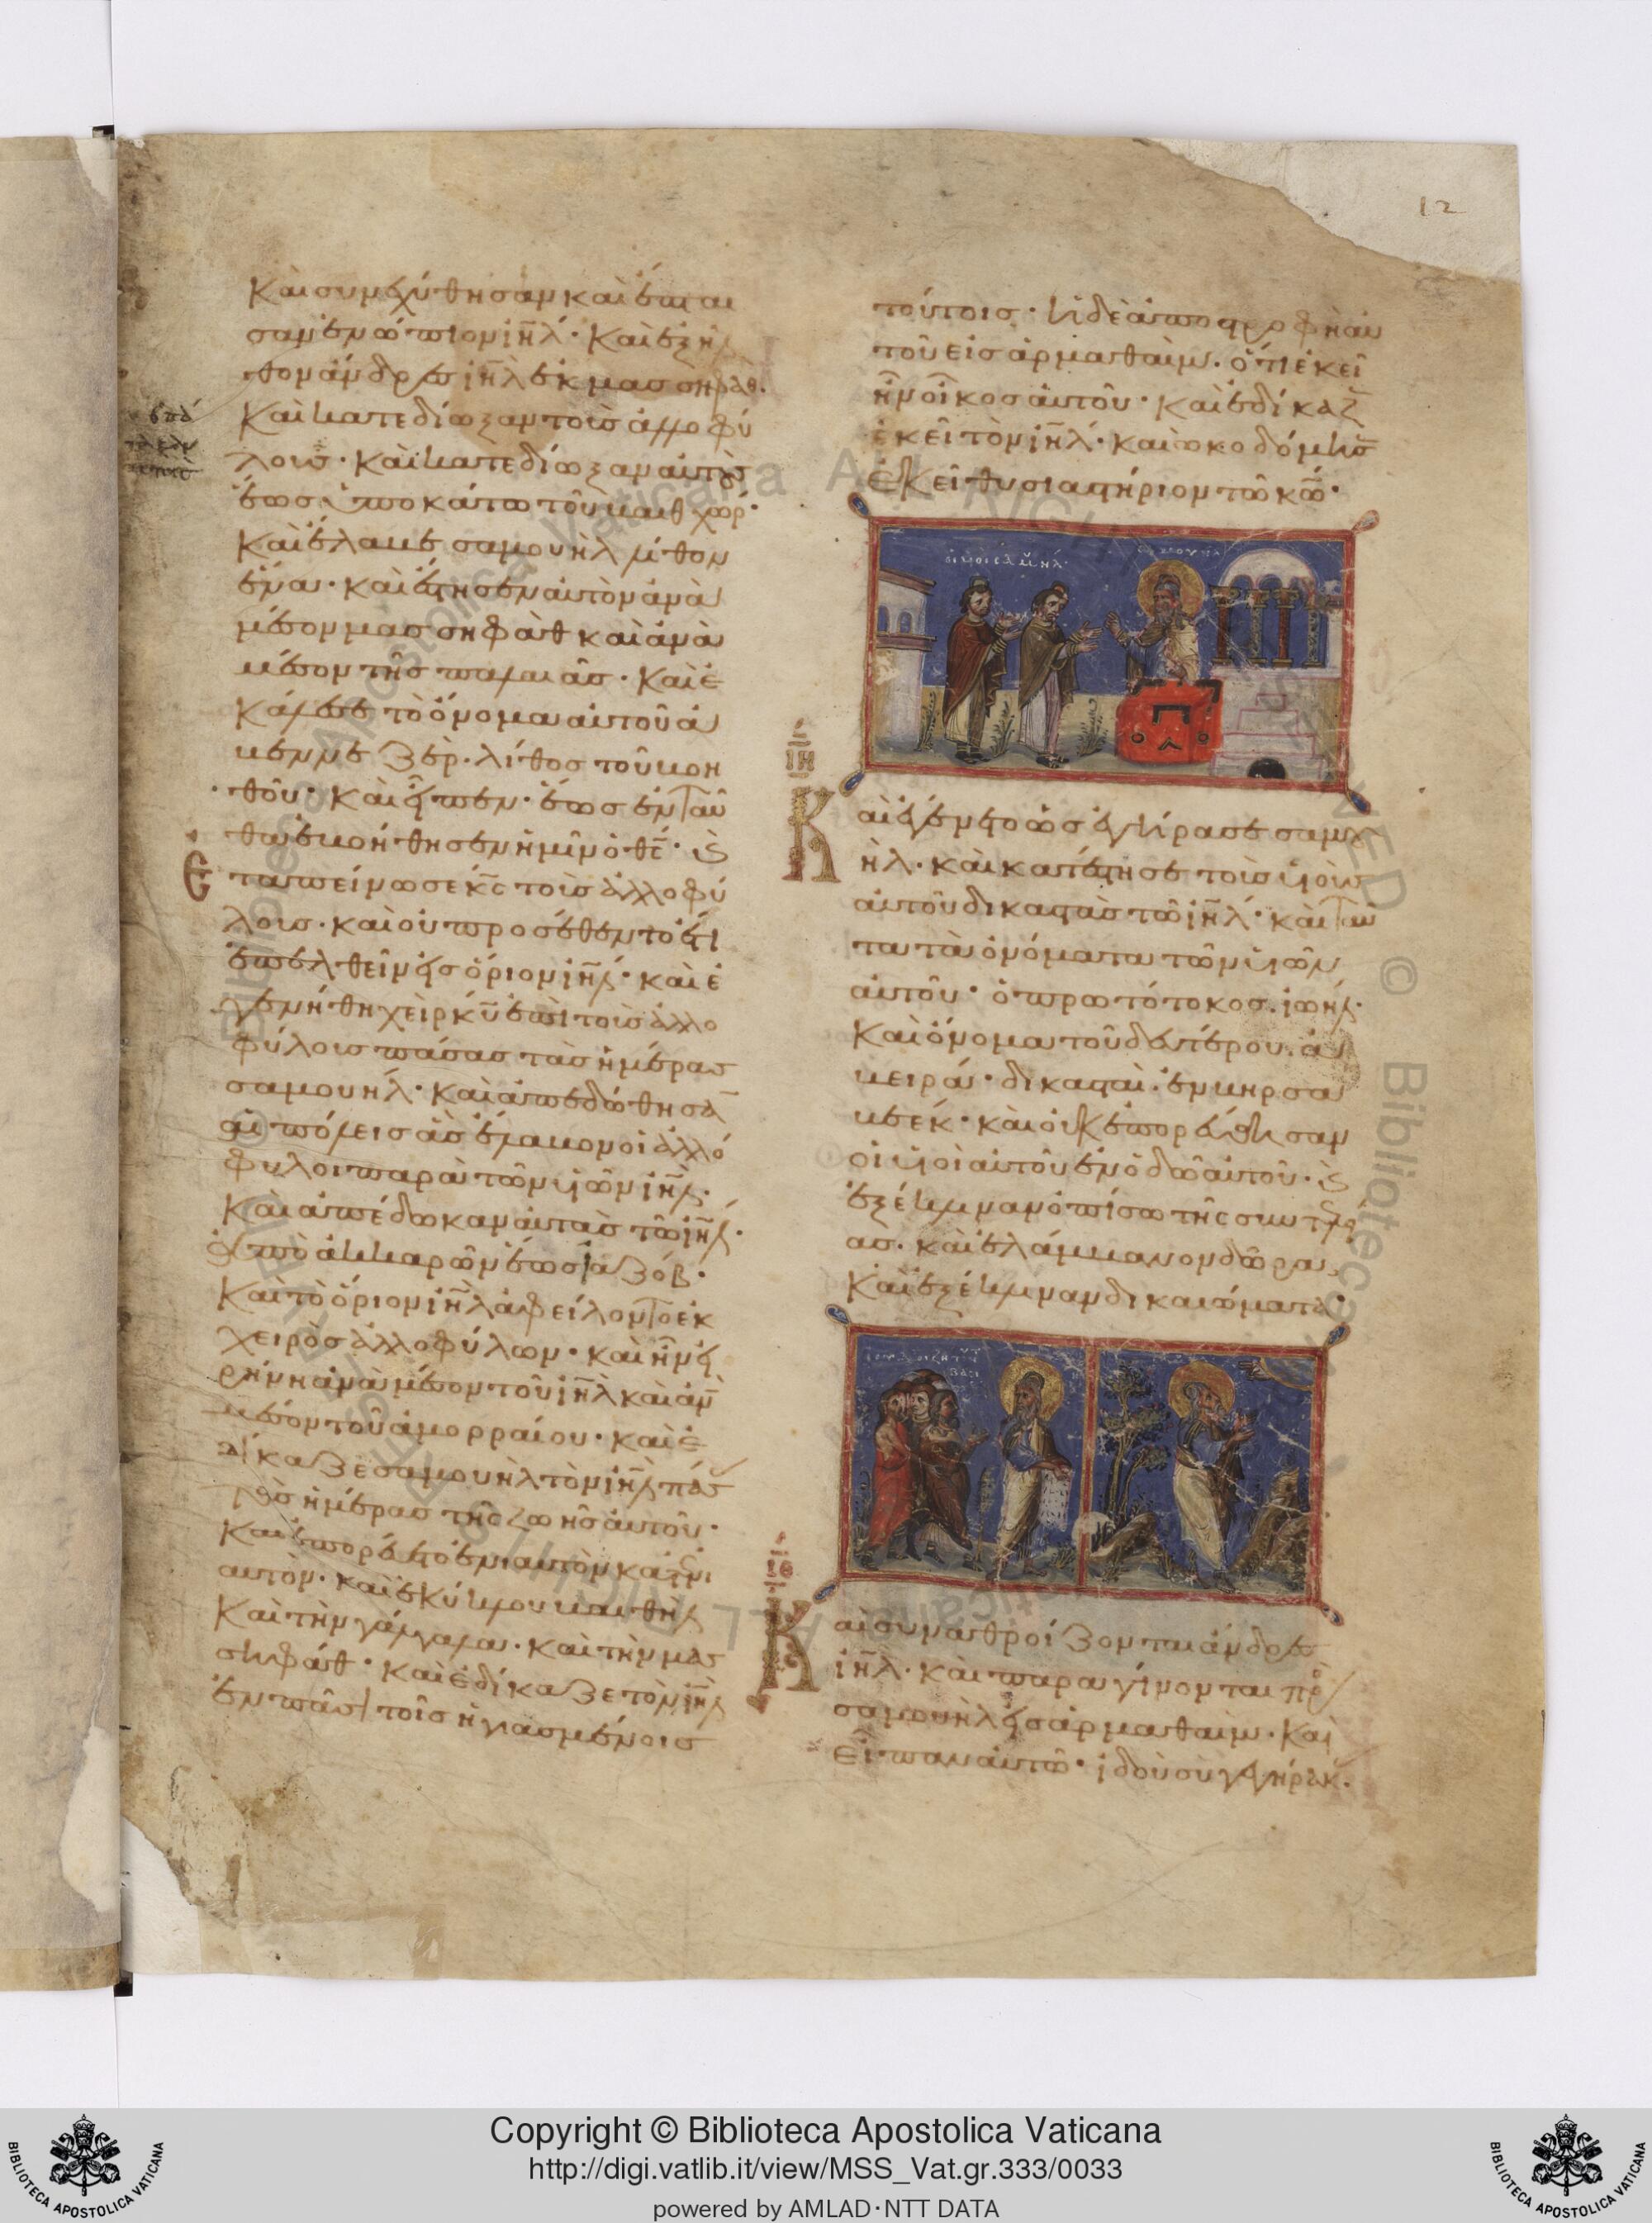 12
Καὶ συνεχύθησαν καὶ ἔπται
σαν ἐνώπιον ιηλ· Καὶ ἐξῆλ
θον ἄνδρες ιηλ ἐκ μασσηφὰθ.
Καὶ κατεδίωξαν τοὺς ἀλλοφύ
λους· Καὶ κατεδίωξαν αὐτοὺς
ἕως ὑποκάτω τοῦ βαιθχώρ·
Καὶ ἔλαβε σαμουὴλ λίθον
ἕνα· καὶ ἔστησεν αὐτὸν ἀνὰ
μέσον μασσηφὰθ καὶ ἀνὰ
μέσον τῆς παλαιᾶς· Καὶ ἐ
κάλεσε τὸ ὄνομα αὐτοῦ ἀ
βεννεζερ· λίθος τοῦ βοη
θοῦ· Καὶ εἶπεν· ἕως ἐνταῦ
θα ἐβοήθησεν ἡμῖν ὁ θς· Καὶ
Ἐταπείνωσε κς τοὺς ἀλλοφύ
λους· καὶ οὐ προσέθεντο ἔτι
ἐπελθεῖν εἰς ὅριον ιηλ· καὶ ἐ
γενήθη χεὶρ κυ ἐπὶ τοὺς ἀλλο
φύλους πάσας τὰς ἡμέρας
σαμουήλ· Καὶ ἀπεδόθησαν
αἱ πόλεις ἃς ἔλαβον οἱ ἀλλό
φυλοι παρὰ τῶν υἱῶν ιηλ·
Καὶ ἀπέδωκαν αὐτὰς τῷ ιηλ·
ἀπὸ ἀκκαρῶν ἕως ἀζόβ·
Καὶ τὸ ὅριον ιηλ ἀφείλοντο ἐκ
χειρὸς ἀλλοφύλων· καὶ ἦν εἰ
ρήνη ἀνὰ μέσον τοῦ ιηλ καὶ ἀνὰ
μέσον τοῦ ἀμορραίου· καὶ ἐ
δίκαζε σαμουὴλ τὸν ιηλ πάσας
τὰς ἡμέρας τῆς ζωῆς αὐτοῦ·
Καὶ ἐπορεύετο ἐνιαυτὸν κατ' ἐνι
αυτόν· καὶ ἐκύκλου βαιθηλ
Καὶ τὴν γάλγαλα· Καὶ τὴν μασ
σηφάθ· Καὶ ἐδίκαζε τὸν ιηλ
ἐν πᾶσι τοῖς ἡγιασμένοις
τούτοις· ἡ δὲ ἀποστροφὴ αὐ
τοῦ εἰς ἁρμαθαίμ· ὅτι ἐκεῖ
ἦν οἶκος αὐτοῦ· Καὶ ἐδίκαζεν
ἐκεῖ τὸν ιηλ· καὶ ᾠκοδόμησεν
Ἐκεῖ θυσιαστήριον τῷ κω·
ΙΗ
Καὶ ἐγένετο ὡς ἐγήρασε σαμου
ήλ· καὶ κατέστησε τοὺς υἱοὺς
αὐτοῦ δικαστὰς τῷ ιηλ· καὶ ταῦ
τα τὰ ὀνόματα τῶν υἱῶν
αὐτοῦ· ὁ πρωτότοκος ἰωήλ·
Καὶ ὄνομα τοῦ δευτέρου ἀ
βειρά· δικασταὶ ἐν βηρσα
βεέκ· καὶ οὐκ ἐπορεύθησαν
οἱ υἱοὶ αὐτοῦ ἐν ὁδῷ αὐτοῦ· Καὶ
ἐξέκλιναν ὀπίσω τῆς συντελεί
ας· καὶ ἐλάμβανον δῶρα·
Καὶ ἐξέκλιναν δικαιώματα·
ΙΘ
Καὶ συναθροίζονται ἄνδρες
ιηλ· καὶ παραγίνονται πρὸς
σαμουὴλ εἰς ἁρμαθαίμ· Καὶ
Εἶπαν αὐτῷ· ἰδοὺ σὺ γεγήρακας·
Copyright © Biblioteca Apostolica Vaticana
http://digi.vatlib.it/view/MSS_Vat.gr.333/0033
powered by AMLAD·NTT DATA
BIBLIOTECA APOSTOLICA VATICANA
BIBLIOTECA APOSTOLICA VATICANA